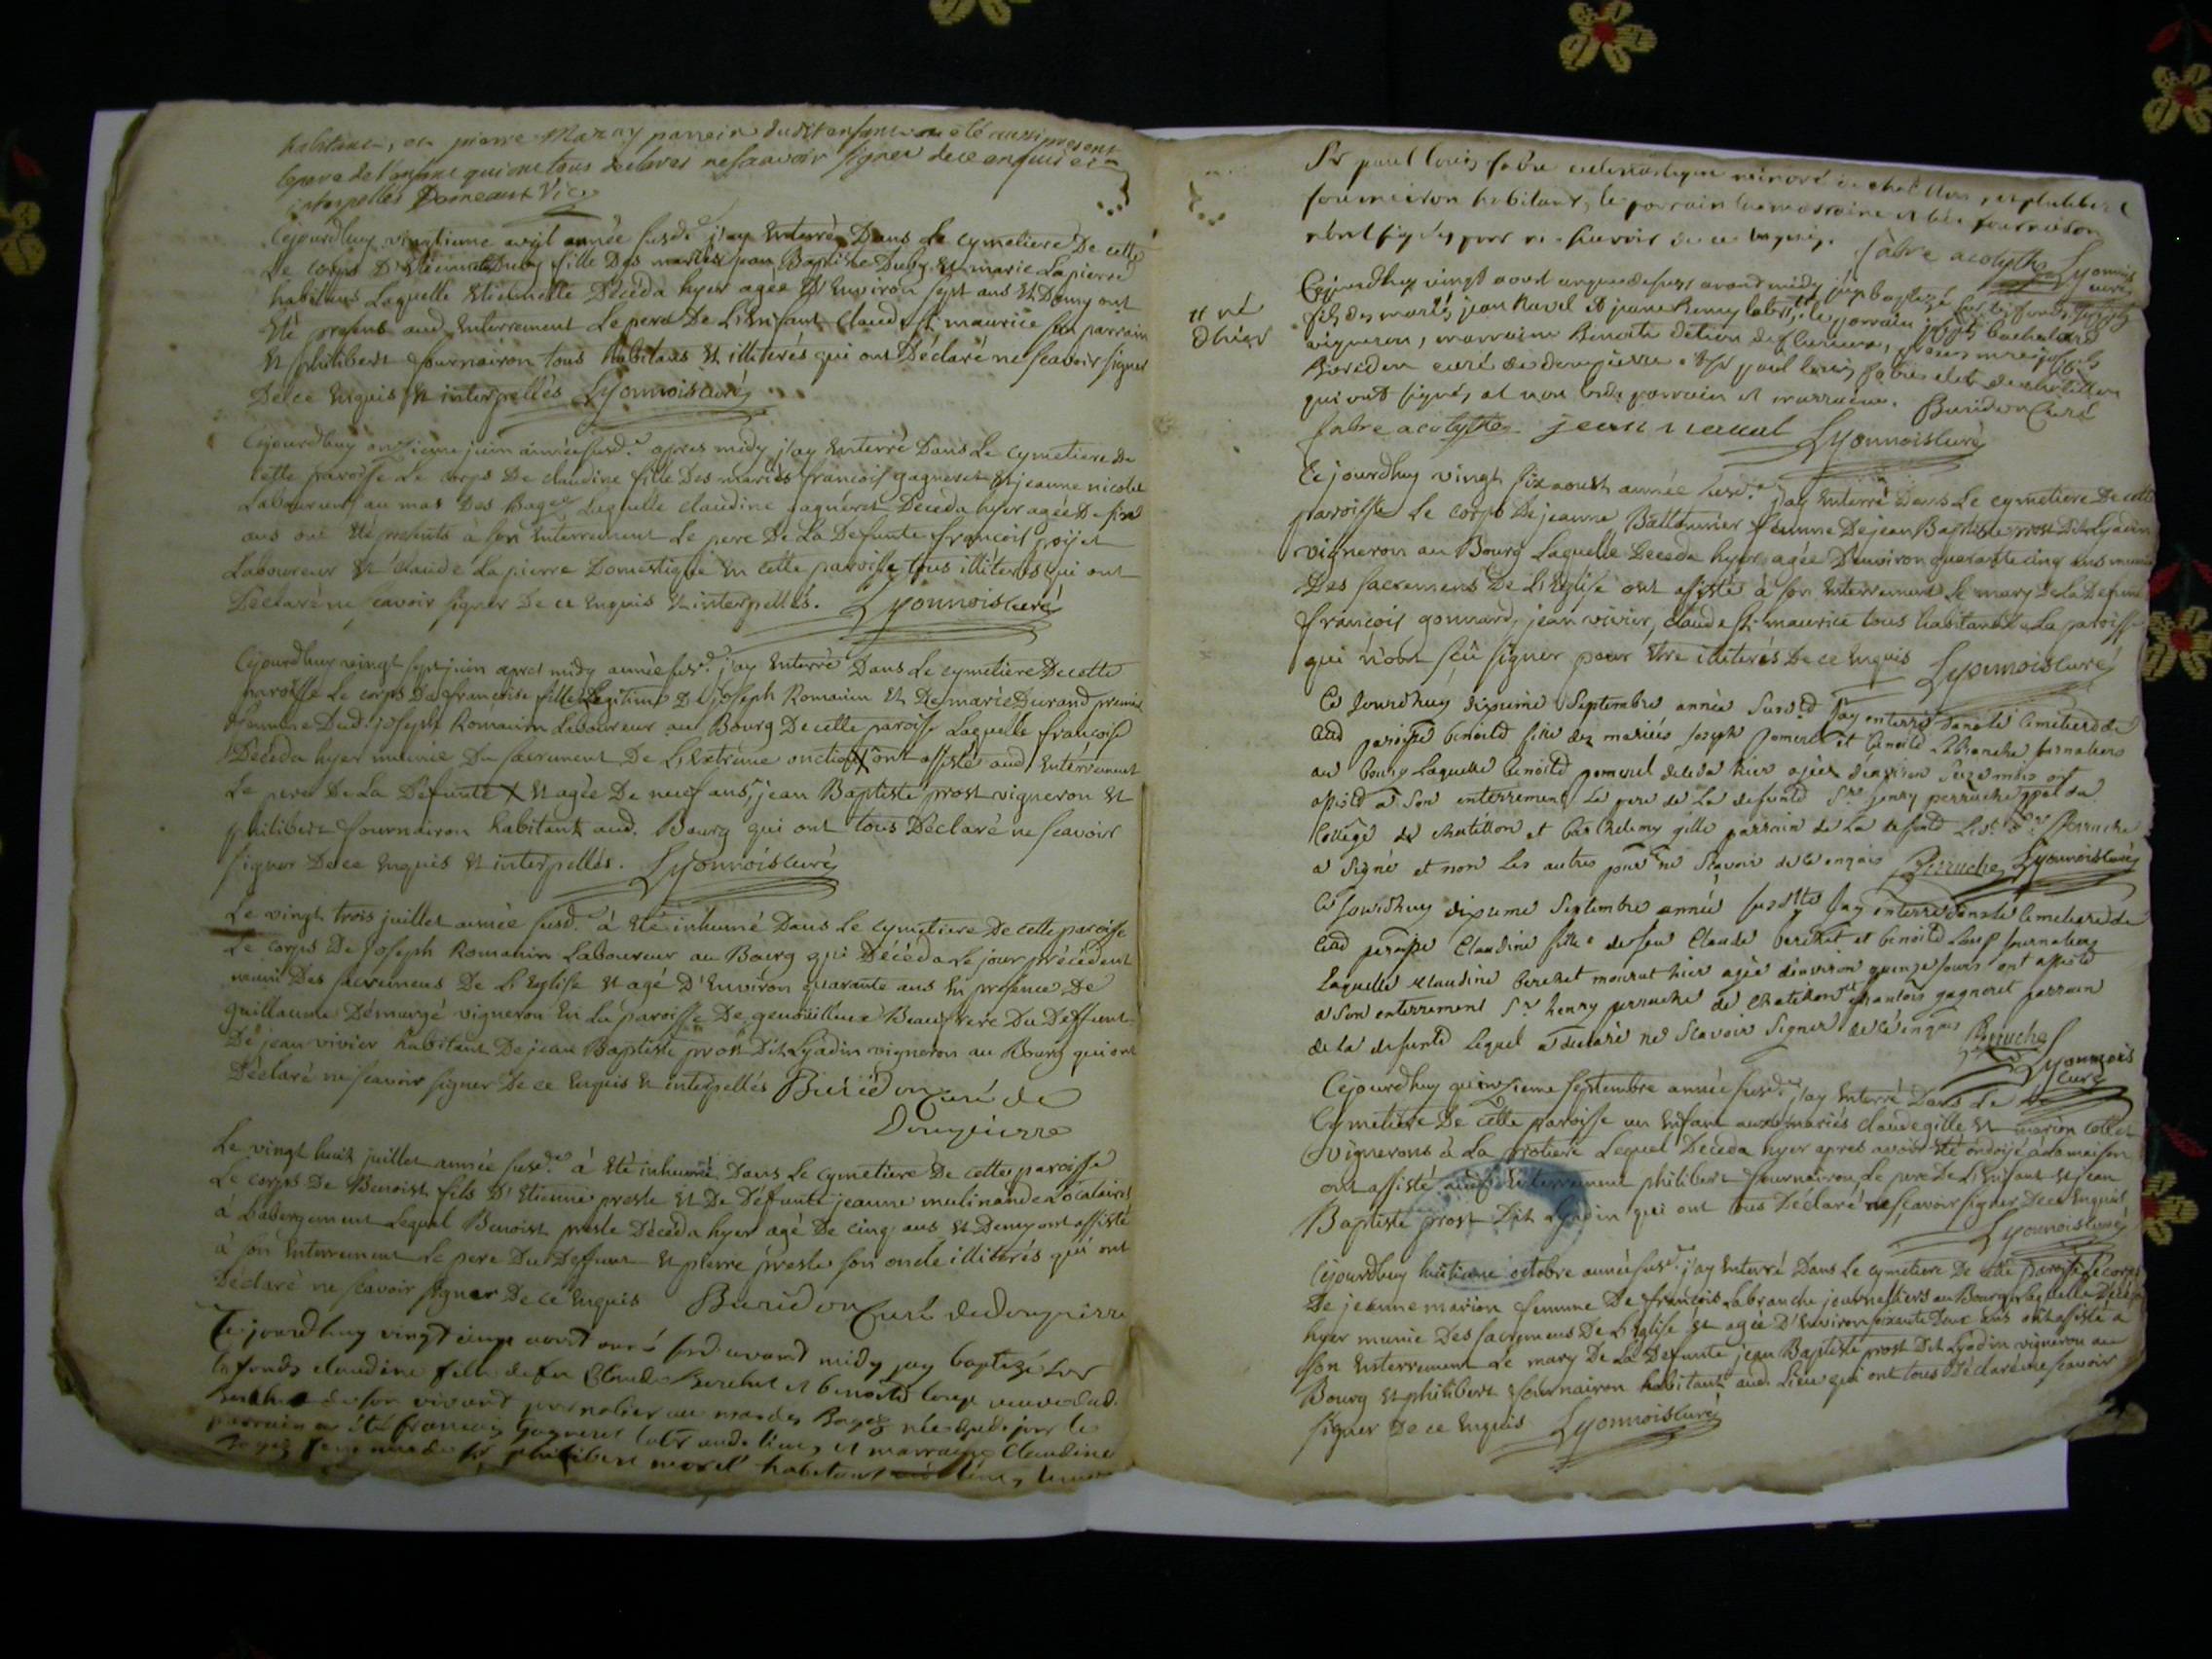 habitant, et pierre Mazuy parrein dudit enfant a été aussi present
le pere de l'enfant qui ont tous declarés ne sçavoir signer de ce enquis et
interpellés Domeant Vic.
Cejourdhuy vingtieme avril année susd.e j'ay Enterré Dans Le Cymetiere De cette
Le corps D'Etiennette Duby fille Des mariés jean Baptiste Duby et marie Lapierre
habitans Laquelle Etiennette Décéda hyer agée D'Environ sept ans et Demy ont
Eté presens aud. Enterrement Le pere De L'Enfant Claude St. maurice son parrain
Et philibert fournairon tous habitans et illiterés qui ont Déclaré ne sçavoir signer
De ce Enquis et interpellés Lyonnois curé
Cejourdhuy onzieme juin année susd.e apres midy j'ay Enterré Dans Le Cymetiere De
cette paroisse Le corps De claudine fille Des mariés francois gagneret et jeanne nicolet
Laboureurs au mas Des Bages Laquelle claudine gagneret Decéda hyer agée De six
ans ont Eté presents à son Enterrement Le pere De La Defunte francois poijet
Laboureur Et Claude Lapierre Domestique En cette paroisse tous illiterés qui ont
Déclaré ne sçavoir signer De ce Enquis et interpellés. Lyonnois curé
Cejourdhuy vingt sept juin apres midy année susd.e j'ay Enterré Dans Le cymetiere De cette
paroisse Le corps De francoise fille Legitime De joseph Romanin et De marie Durand premiere
femme Dud. joseph Romanin Laboureur au Bourg De cette paroisse Laquelle francoise
Décéda hyer munie Du sacrement De L'Extreme onction X ont assisté aud. Enterrement
Le pere De La Defunte X Et agée De neuf ans, jean Baptiste prost vigneron Et
philibert fournairon habitant aud. Bourg qui ont tous Déclaré ne sçavoir
signer De ce Enquis Et interpellés. Lyonnois curé
Le vingt trois juillet année susd.e à Eté inhumé Dans Le cymetiere De cette paroisse
Le corps De joseph Romanin Laboureur au Bourg qui Décéda Le jour précédent
muni Des sacremens De L'Eglise Et agé D'Environ quarante ans En presence De
guillaume Démurgé vigneron En La paroisse De genouilleux Beaufrere Du Deffunt
De jean vivier habitant De jean Baptiste prost Dit Lyadin vigneron au Bourg qui ont
Déclaré ne sçavoir signer De ce Enquis et interpellés Buridon Curé de
Dompierre
Le vingt huit juillet année susd.e à Eté inhumé Dans Le cymetiere De cette paroisse
Le corps De Benoist fils D'Etienne presle Et De Défunte jeanne mulinande Locataires
à Labergement Lequel Benoist presle Décéda hyer agé De cinq ans et Demy ont assisté
à son Enterrement Le pere Du Deffunt Et pierre presle son oncle illiterés qui ont
Déclaré ne sçavoir signer De ce Enquis Buridon Curé de dompierre
Cejourdhuy vingt cinq aout année susd. avant midy jay baptizé sur
les fonds claudine fille de feu Claude Berchet et benoite loup veuve dud.
Berchet de son vivant journalier au mas des Bages née dud. jour le
parrain a été francois gagneret labr. aud. lieu, et marraine Claudine
philibert morel habitant
Sr paul louis fabre eclesiastique minoré de chatillon, et philibert
fournairon habitant, le parrain la marraine et led. fournairon
n'ont signés pour ne sçavoir de ce enquis. fabre acolythe Lyonnois
curé
Cejourdhuy vingt aout année susd. avant midy jay baptizé sur les fonds joseph
et né
d'hier
fils des mariés jean Ravel et jeanne Remy labrs., le parrain joseph bachelard
vigneron, marraine Benoite , presens mre joseph
Buridon curé de dompierre. et Sr paul louis fabre clerc de chatillon
qui ont signés, et non lesd. parrain et marraine. Buridon Curé
fabre acolythe jean ravel Lyonnois curé
Ce jourdhuy vingt six aoust année susd.e j'ay Enterré Dans Le cymetiere De cette
paroisse Le corps De jeanne Battonnier femme De jean Baptiste prost Dit Lyadin
vigneron au Bourg Laquelle Deceda hyer agée D'environ quarante cinq ans munie
Des sacremens De L'Eglise ont assisté à son Enterrement Le mary De La Defunte
francois gonnard, jean vivier, claude St. maurice tous habitants En La paroisse
qui n'ont sçû signer pour Etre illiterés De ce Enquis Lyonnois curé
Ce Jourdhuy dixieme Septembre année Susd. Jay enterré dans le Cemetiere de
lad paroisse benoite fille des mariés Joseph pomerel et benoite Labranche journaliers
au bourg Laquelle benoite pomerel deceda hier agée denviron Seize mois ont
assisté a Son enterrement Le pere de La defunte Sr. henry perruche ppal du
College de chatillon et barthelemy gille parrain de La defunte Led. Sr. Perruche
a Signé et non les autres pour ne Scavoir de ce enquis Perruche Lyonnois curé
Ce Jourdhuy dixieme Septembre année susdte Jay enterré dans le Cemetiere de
lad paroisse Claudine fille de feu Claude berchet et benoite Loup journaliers
Laquelle Claudine berchet mourut hier agée denviron quinze jours ont assisté
a Son enterrement Sr. henry perruche de Chatillon et francois gagneret parrain
de La defunte Lequel a declaré ne Scavoir Signer de ce enquis Perruche
Lyonnois
curé
Cejourdhuy quinzieme septembre année susd.e j'ay Enterré Dans Le
Cymetiere De cette paroisse un Enfant aux mariés claude gille Et marion Collet
vignerons à La frotiere Lequel Deceda hyer apres avoir Eté ondoijé à la maison
ont assisté aud. Enterrement philibert fournairon, Le pere De L'Enfant Et jean
Baptiste prost Dit Lyadin qui ont tous Déclaré ne sçavoir signer De ce Enquis
Lyonnois curé
Cejourdhuy huitieme octobre année susd.e j'ay Enterré Dans Le cymetiere De cette paroisse Le corps
De jeanne marion femme De francois Labranche journaliers au Bourg Laquelle Décéda
hyer munie Des sacremens De L'Eglise Et agée D'Environ soixante Deux ans ont assisté à
son Enterrement Le mary De La Defunte jean Baptiste prost Dit Lyadin vigneron au
Bourg Et philibert fournairon habitant aud. Lieu qui ont tous Déclaré ne sçavoir
signer De ce Enquis Lyonnois curé